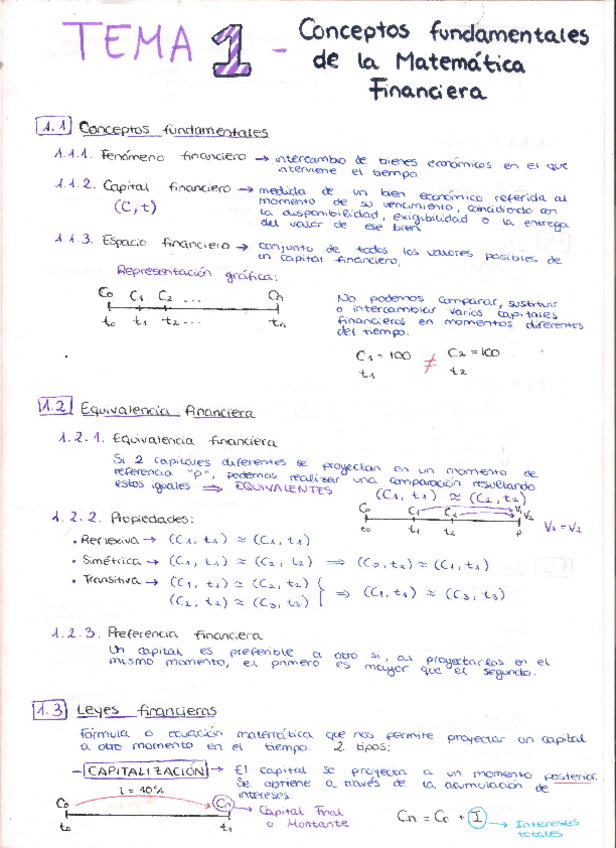 TEMA 1 - Conceptos fundamentales
de la Matemática
Financiera
1.1 Conceptos fundamentales
1.1.1. Fenómeno financiero → intercambio de bienes económicos en el que
interviene el tiempo.
1.1.2. Capital financiero → medida de un bien económico referida al
(C, t) momento de su vencimiento, coincidiendo con
la disponibilidad, exigibilidad o la entrega
del valor de ese bien
1.1.3. Espacio financiero → conjunto de todos los valores posibles de
un capital financiero.
Representación gráfica:
C0 C1 C2 ... Cn
t0 t1 t2 ... tn
No podemos comparar, sustituir
o intercambiar varios capitales
financieros en momentos diferentes
del tiempo.
C1 = 100 ≠ C2 = 100
t1 t2
1.2 Equivalencia financiera
1.2.1. Equivalencia financiera
Si 2 capitales diferentes se proyectan en un momento de
referencia "p", podemos realizar una comparación resultando
estos iguales ⇒ EQUIVALENTES (C1, t1) ≈ (C2, t2)
C0 C1 C2 V1 V2
t0 t1 t2 p
V1 = V2
1.2.2. Propiedades:
• Reflexiva → (C1, t1) ≈ (C1, t1)
• Simétrica → (C1, t1) ≈ (C2, t2) ⇒ (C2, t2) ≈ (C1, t1)
• Transitiva → (C1, t1) ≈ (C2, t2)
(C2, t2) ≈ (C3, t3) } ⇒ (C1, t1) ≈ (C3, t3)
1.2.3. Preferencia financiera
Un capital es preferible a otro si, al proyectarlos en el
mismo momento, el primero es mayor que el segundo.
1.3 Leyes financieras
Fórmula o ecuación matemática que nos permite proyectar un capital
a otro momento en el tiempo. 2 tipos:
- CAPITALIZACIÓN → El capital se proyecta a un momento posterior.
Se obtiene a través de la acumulación de
intereses.
i = 10%
C0 Cn → Capital Final
o Montante
t0 t1
Cn = C0 + I → Intereses
totales